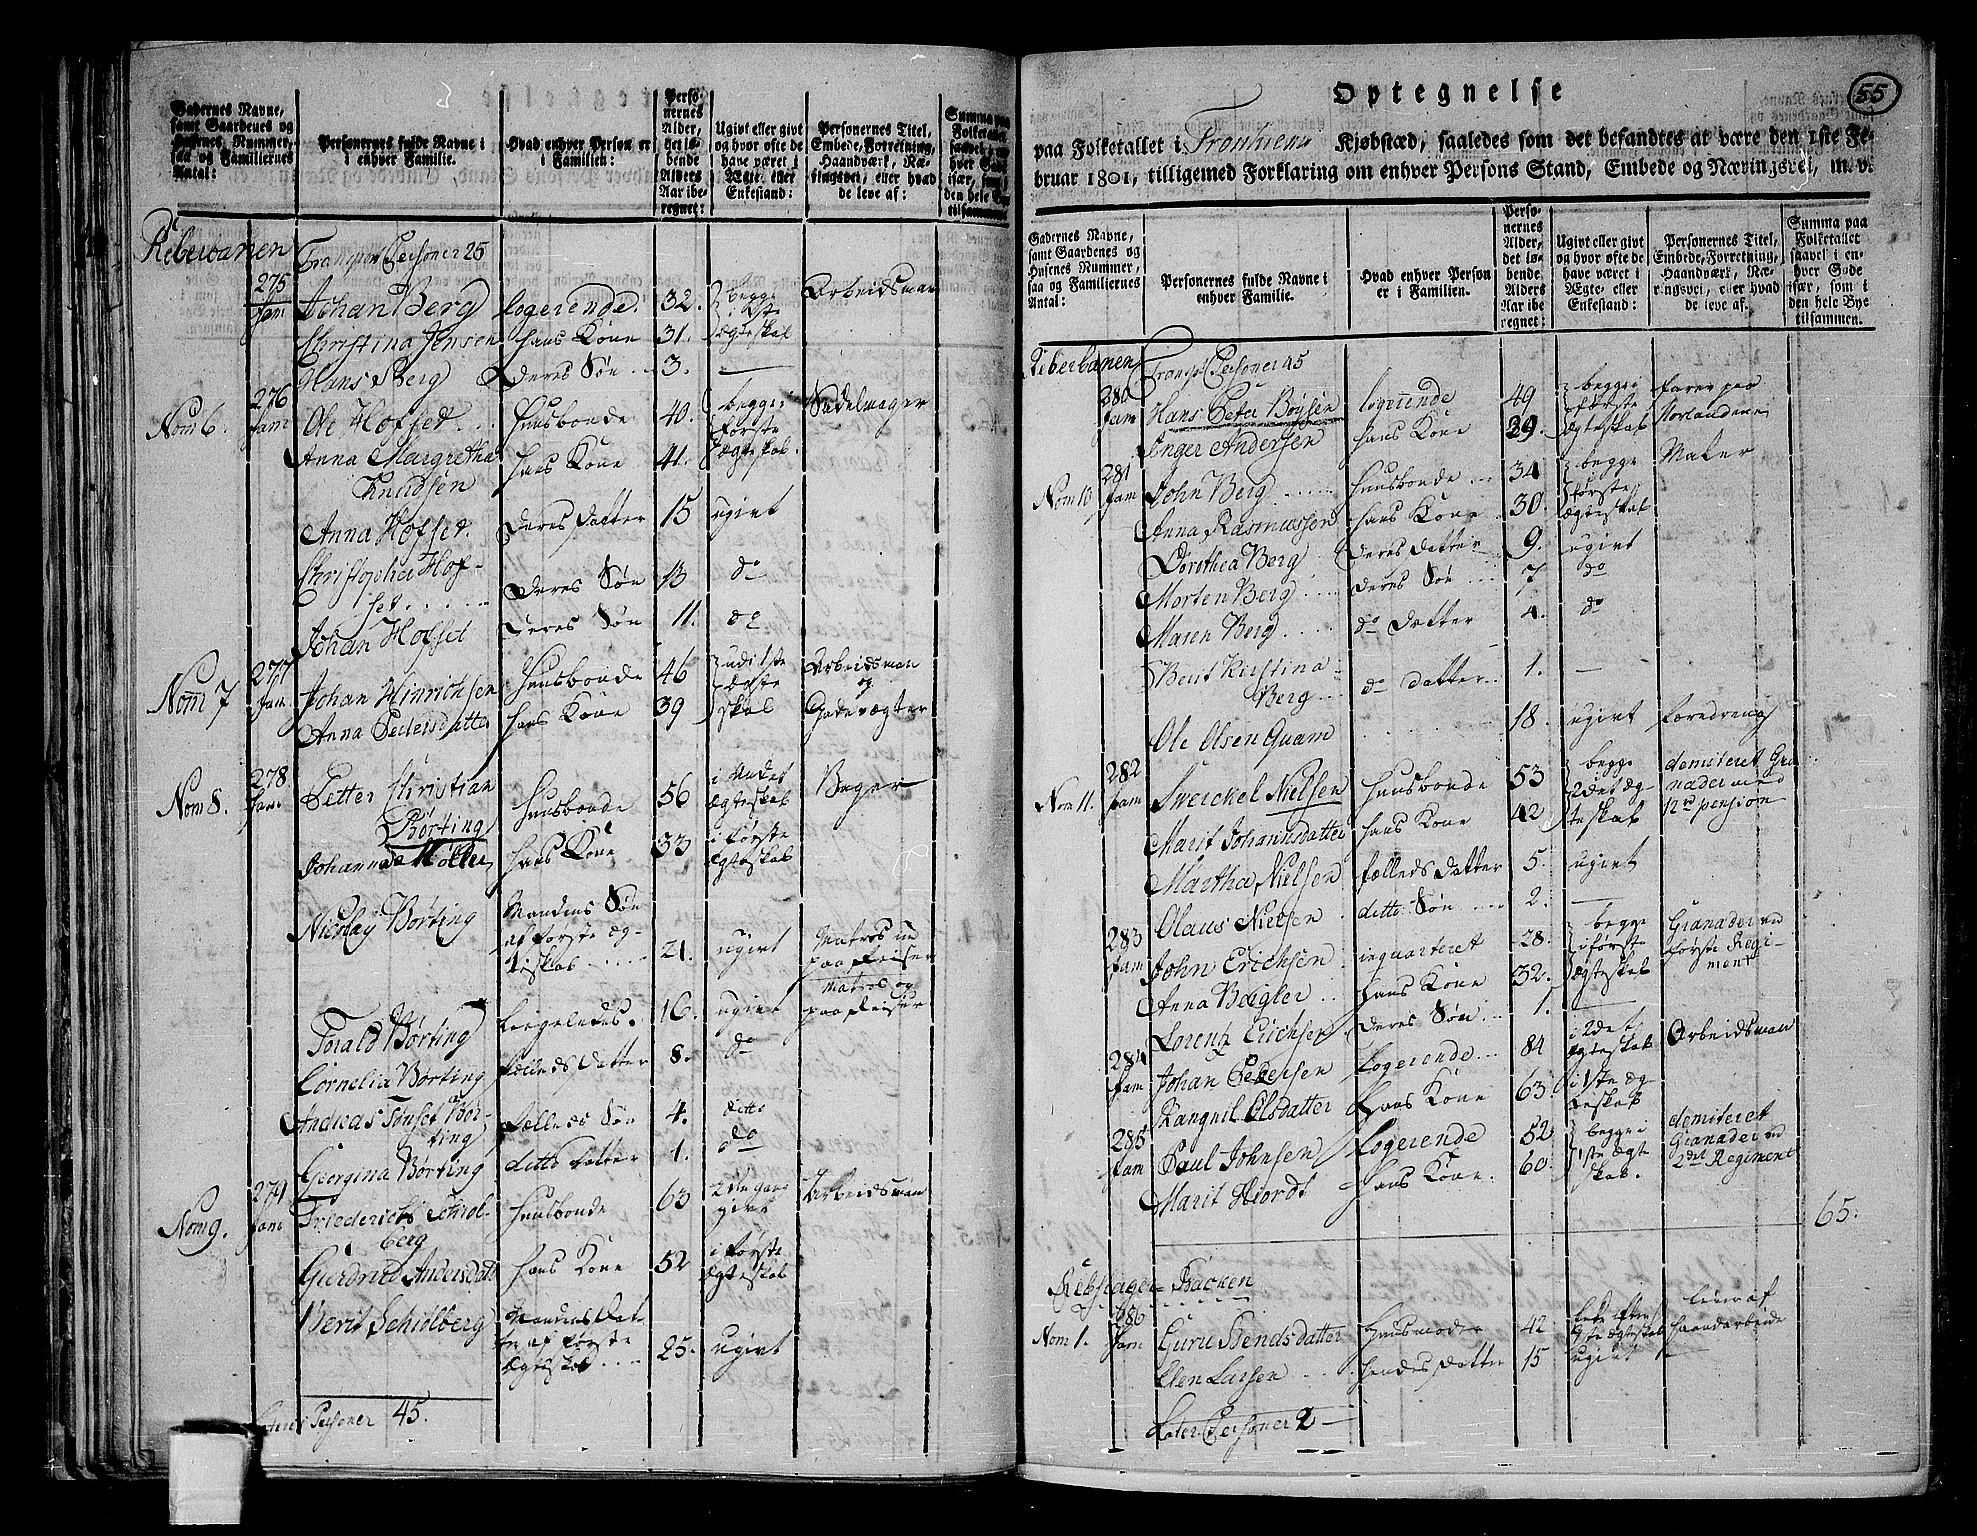 Gadernes Navne, samt Gaardenes og Husenes Nummer, saa og Familiernes Antal:
Personernes fulde Navne i enhver Familie.
Hvad enhver Person er i Familien:
Personernes Alder, det løbende Alders Aar iberegnet:
Ugivt eller givt og hvor ofte de have været i Ægte eller Enkestand:
Personernes Titel, Embede, Forretning, Haandværk, Næringsvei, eller hvad de leve af:
Reberbanen Transport Personer 25
275 Fam Johan Berg logerende 32. begge i 1ste Arbeidsman
Christina Jensen hans Kone 31. Ægteskab
Hans Berg Deres Søn 3. —
Nom 6. 276 Fam Ole Hofset Huusbonde 40. begge i Sadelmager
Anna Margretha hans Kone 41. første Ægteskab
Knudsen
Anna Hofset Deres Datter 15 ugivt
Christopher Hof- Deres Søn 13 do
set
Johan Hofset Deres Søn 11. do
Nom 7 277 Fam Johan Hinrichsen Huusbonde 46 udi 1ste Arbeidsman og
Anna Pedersdatter hans Kone 39 Ægteskab Gadevægter
Nom 8. 278 Fam Petter Christian Huusbonde 56 i Andet Ægteskab Bager
Børting
Johanna Møller hans Kone 33 i første Ægteskab
Nicolay Børting Mandens Søn af første Ægteskab 21. ugivt Matros ude paa Reiser
Torald Børting Ligeledes 16. ugivt Matros og paa Reiser
Cornelia Børting Fælleds Datter 8. do
Andreas Tønset Bør- Fælleds Søn 4. ditto
ting
Georgina Børting ditto Datter 1. do
Nom 9. 279 Fam Friederich Schiol- Huusbonde 63 2den gang givt Arbeidsman
berg
Gurdrud Andersdatt hans Kone 52 i første Ægteskab
Berit Schiølberg Mandens Datter af første Ægteskab 25. ugivt
Personer 45.
55
Optegnelse
paa Folketallet i Tronhiem Kjøbstæd, saaledes som det befandtes at være den 1ste Fe-
bruar 1801, tilligemed Forklaring om enhver Persons Stand, Embede og Næringsvei, m. v.
Gadernes Navne, samt Gaardenes og Husenes Nummer, saa og Familiernes Antal:
Personernes fulde Navne i enhver Familie.
Hvad enhver Person er i Familien.
Personernes Alder, det løbende Alders Aar iberegnet:
Ugivt eller givt og hvor ofte de have været i Ægte eller Enkestand:
Personernes Titel, Embede, Forretning, Haandværk, Næringsvei, eller hvad de leve af:
Summa paa Folketallet saavel i enhver Gade især, som i den hele Bye tilsammen.
Reberbanen Transp: Personer 45
280 Fam Hans Peter Boysen logerende 49 begge i farer paa
Inger Andersen hans Kone 39. første Ægteskab Norlandene
Nom 10 281 Fam John Berg Huusbonde 34 begge Maler
Anna Rasmussen hans Kone 30. første Ægteskab
Dorothea Berg Deres Datter 9. ugivt
Morten Berg Deres Søn 7 do
Maren Berg do Datter 4. do
Berit Kirstina do Datter 1. —
Berg
Ole Olsen Quam 18. ugivt
Nom 11. 282 Fam Sverckel Nielsen Huusbonde 53 begge demiteret Granader med
Marit Johannsdatter hans Kone 42 2det Ægteskab pension
Martha Nielsen fælleds Datter 5. ugivt
Olaus Nielsen ditto Søn 2. —
283 Fam John Erichsen inquarteret 28. begge Granader ved
Anna Bøigler hans Kone 32. i første Ægteskab første Regiment
Lorentz Erichsen Deres Søn 1. —
284 Fam Johan Petersen Logerende 84 i 2det Ægteskab Arbeidsman
Rangnil Olsdatter Hans Kone 63. i 1ste Ægteskab
285 Fam Paul Johnsen Logerende 52 begge i demiteret Granader ved
Marit Hiordt hans Kone 60. 1ste Ægteskab. 2det Regiment
65.
Rebslager Backen
Nom 1. 286 Fam Guru Bendsdatter Huusmoder 42 Enke efter 1ste Ægteskab lever af haandarbeide
Elen Larsen hendes Datter 15 ugivt —
Later. Personer 2